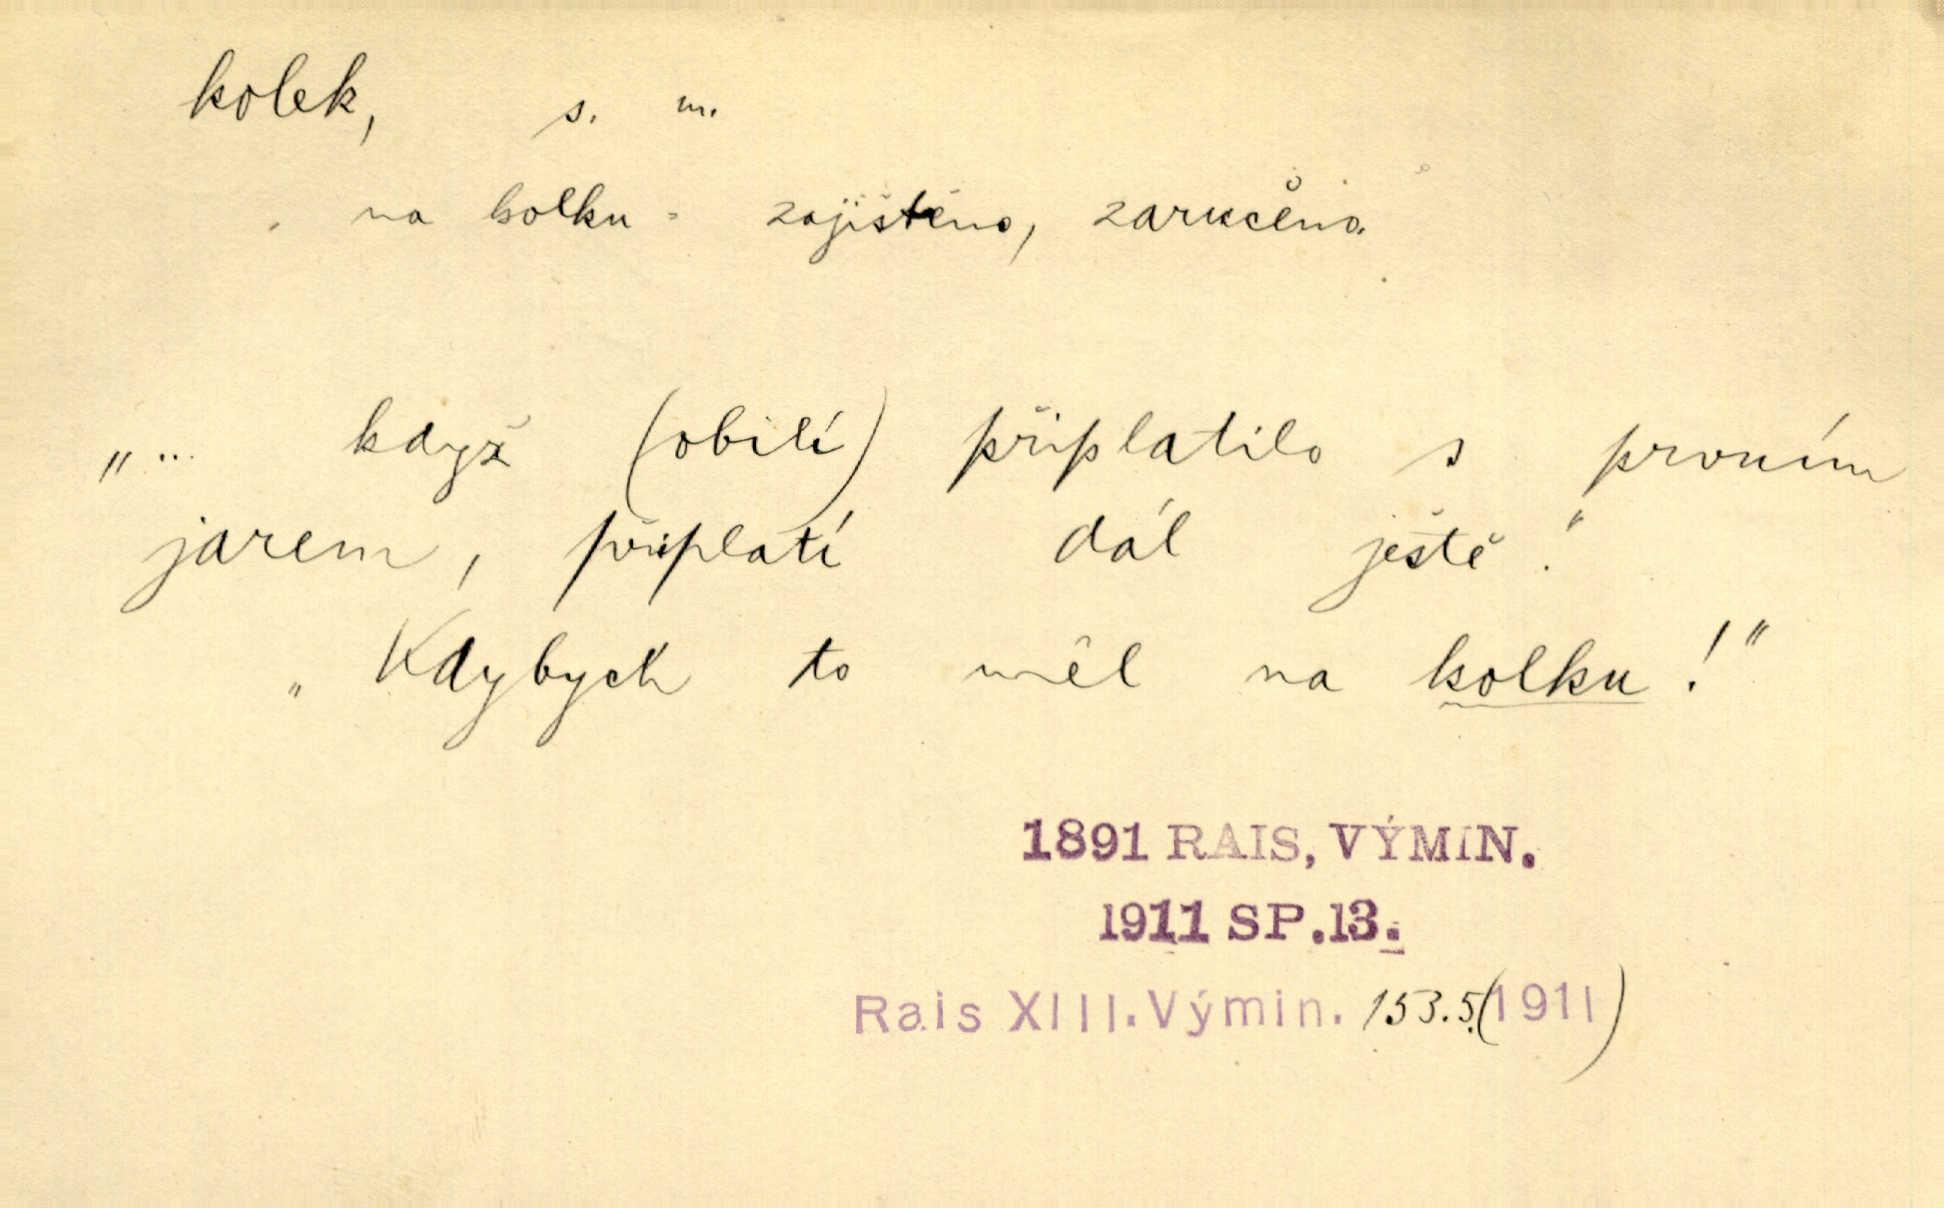 kolek, s. m.
na kolku = zajištěno, zaručeno.
„... když (obilí) připlatilo s prvním
jarem, připlatí dál ještě.“
„Kdybych to měl na kolku!“
1891 RAIS, VÝMIN.
1911 SP.13.
Rais XIII. Výmin. 153.5.(1911)